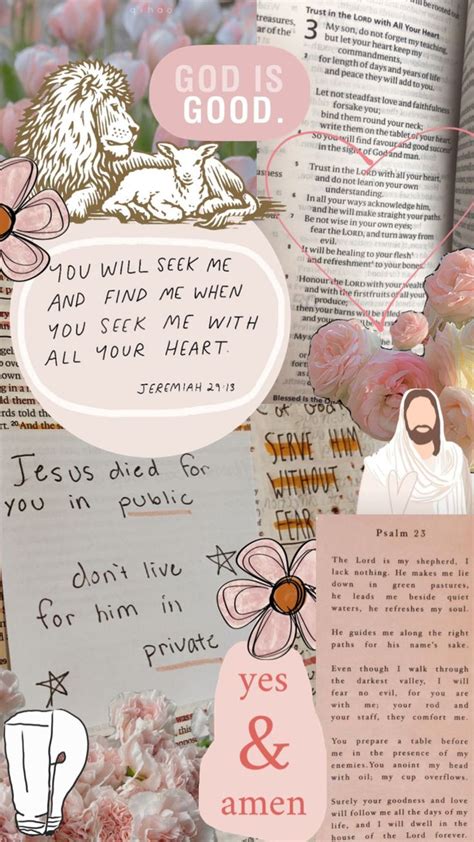 qihao
GOD IS
GOOD.
be rooted out
Trust in the LORD with All Your Heart
3 My son, do not forget my teaching,
but let your heart keep my
commandments,
for length of days and years of life
and peace they will add to you.
Let not steadfast love and faithfulness
forsake you;
bind them round your neck;
write them on the tablet of your heart.
So you will find favour and good success
in the sight of God and man.
Trust in the LORD with all your heart,
and do not lean on your own
understanding.
In all your ways acknowledge him,
and he will make straight your paths.
Be not wise in your own eyes;
fear the LORD, and turn away from
evil.
It will be healing to your flesh
and refreshment to your bones.
Honour the LORD with your wealth
and with the firstfruits of all your
produce;
then your barns will be filled
YOU WILL SEEK ME
AND FIND ME WHEN
YOU SEEK ME WITH
ALL YOUR HEART.
JEREMIAH 29:13
Blessed is the
Jesus died for
you in public
don't live
for him in
private
of God
SERVE HIM
WITHOUT
FEAR
yes
&
amen
Psalm 23
The Lord is my shepherd, I
lack nothing. He makes me lie
down in green pastures,
he leads me beside quiet
waters, he refreshes my soul.
He guides me along the right
paths for his name's sake.
Even though I walk through
the darkest valley, I will
fear no evil, for you are
with me; your rod and
your staff, they comfort me.
You prepare a table before
me in the presence of my
enemies.You anoint my head
with oil; my cup overflows.
Surely your goodness and love
will follow me all the days of my
life, and I will dwell in the
house of the Lord forever.